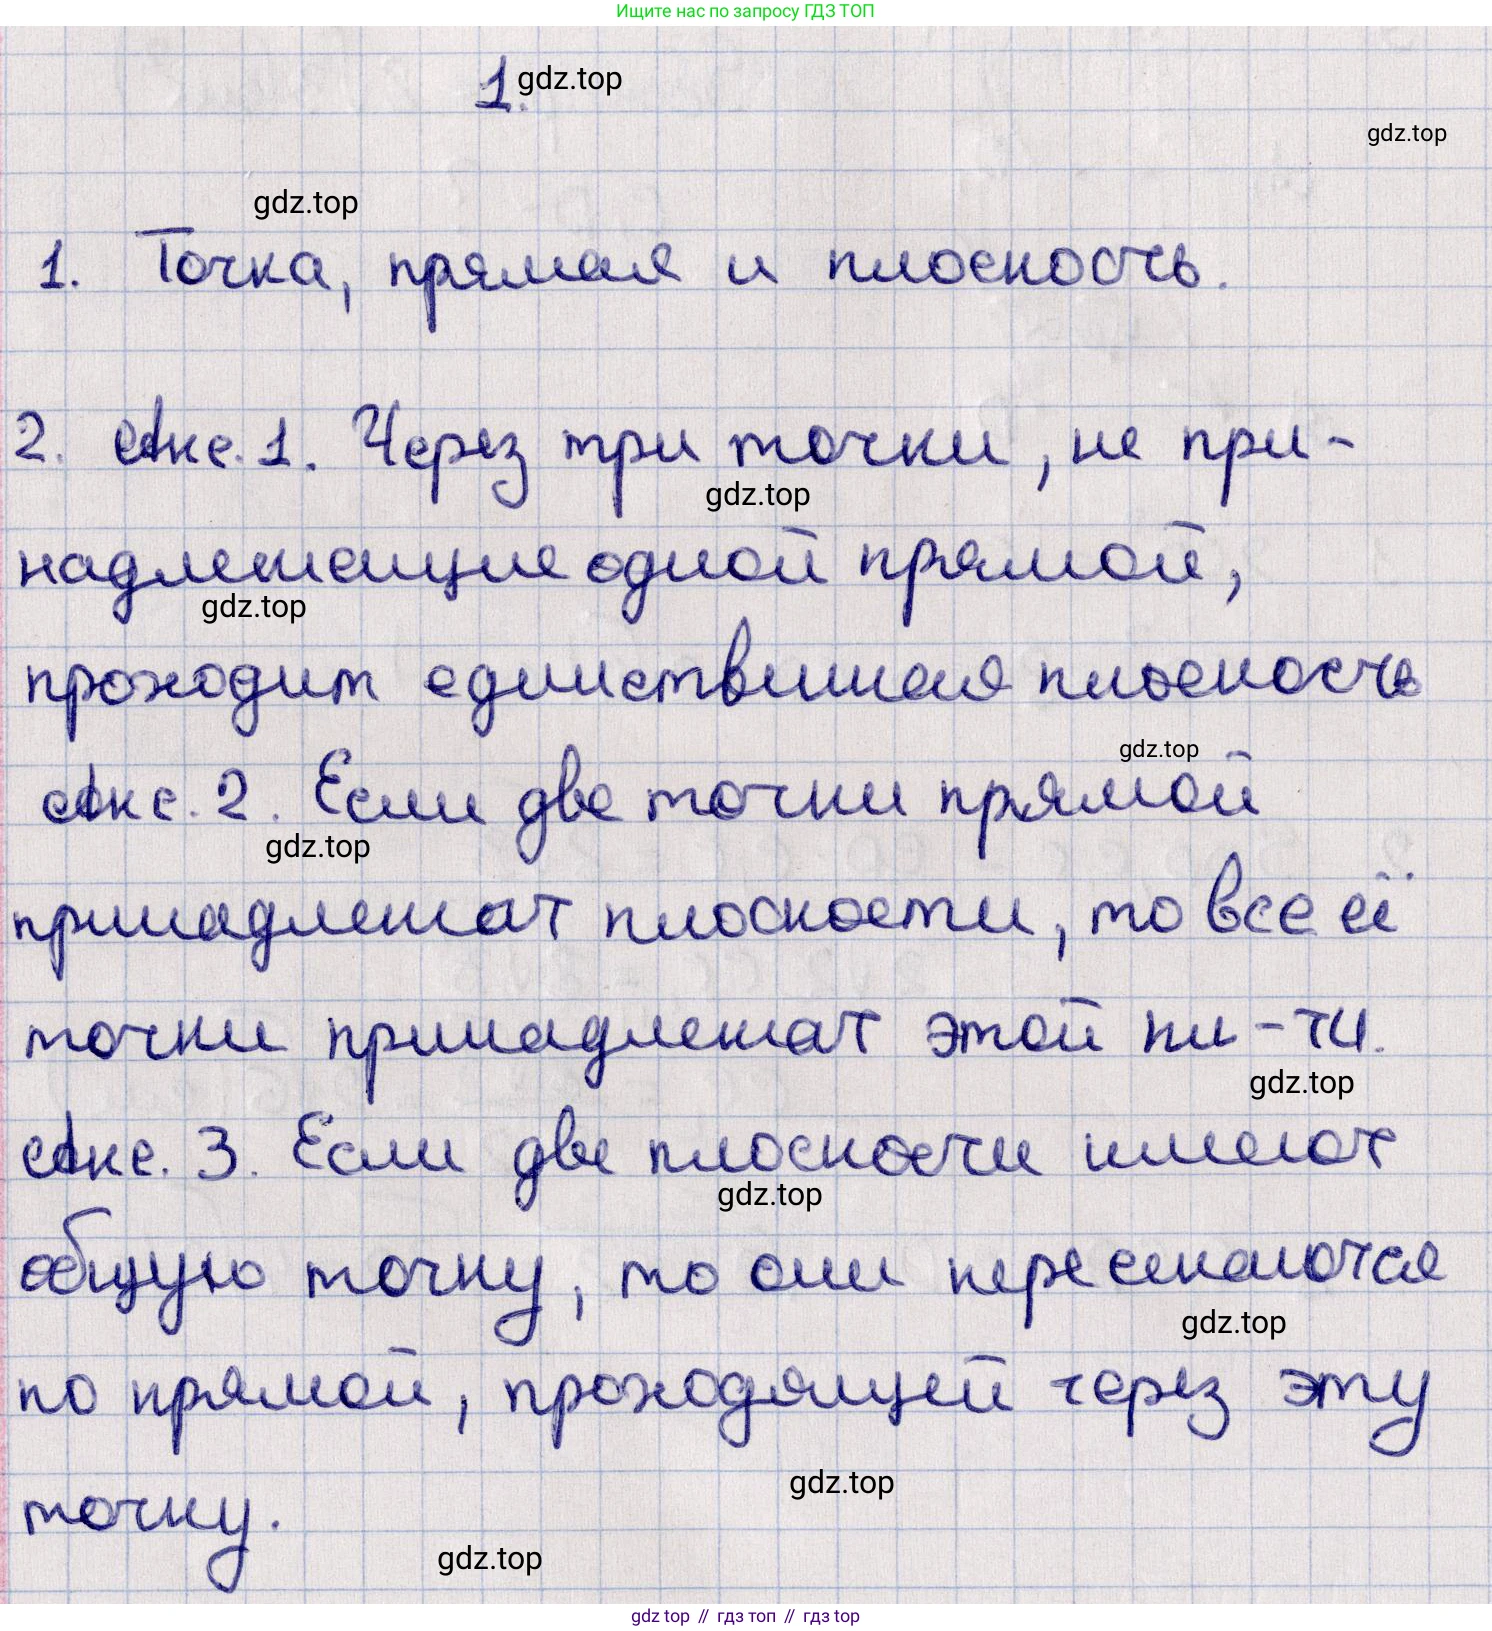 Ищите нас по запросу ГДЗ ТОП
1. gdz.top
gdz.top
gdz.top
1. Точка, прямая и плоскость.
2. Акс. 1. Через три точки, не при-
gdz.top
надлежащие одной прямой,
gdz.top
проходит единственная плоскость
gdz.top
Акс. 2. Если две точки прямой
gdz.top
принадлежат плоскости, то все её
точки принадлежат этой пл-ти.
gdz.top
Акс. 3. Если две плоскости имеют
gdz.top
общую точку, то они пересекаются
gdz.top
по прямой, проходящей через эту
gdz.top
точку.
gdz.top
gdz top // гдз топ // гдз top